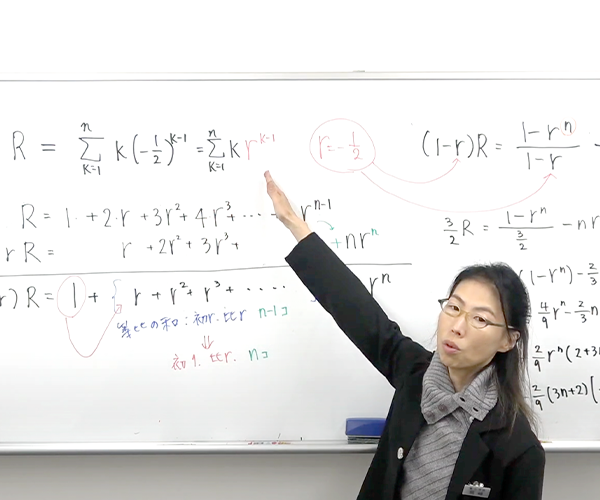 R = \sum_{k=1}^{n} k(-\frac{1}{2})^{k-1} = \sum_{k=1}^{n} k r^{k-1}
r = -\frac{1}{2}
(1-r)R = \frac{1-r^n}{1-r} -
R = 1· + 2·r + 3r² + 4r³ + ···· r^{n-1}
rR = r + 2r² + 3r³ + + nr^n
r)R = 1 + r + r² + r³ + ···· r^n
等比の和：初r. 比r n-1コ
⇓
初1. 比r. nコ
\frac{3}{2}R = \frac{1-r^n}{\frac{3}{2}} - nr
(1-r^n) - \frac{2}{3}
\frac{4}{9}r^n - \frac{2}{3}n
\frac{2}{9}r^n(2+3
\frac{2}{9}(3n+2)(-